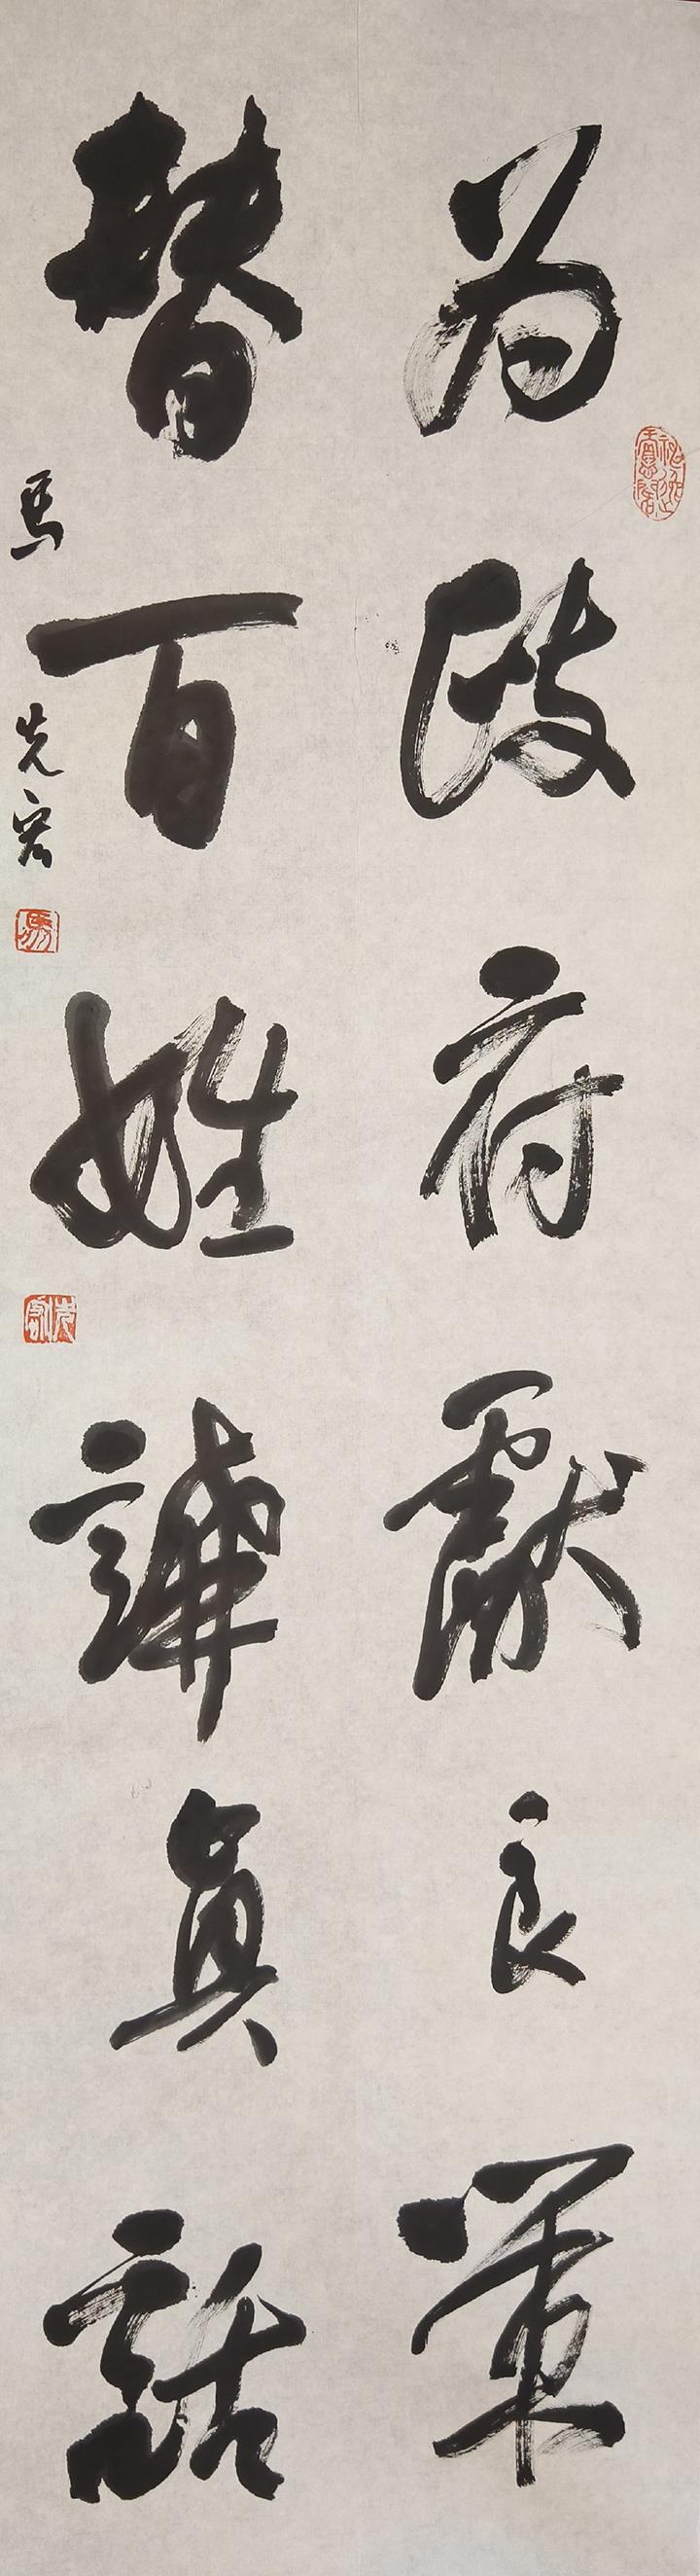 为政府獻良策
替百姓講真話
馬先
馬